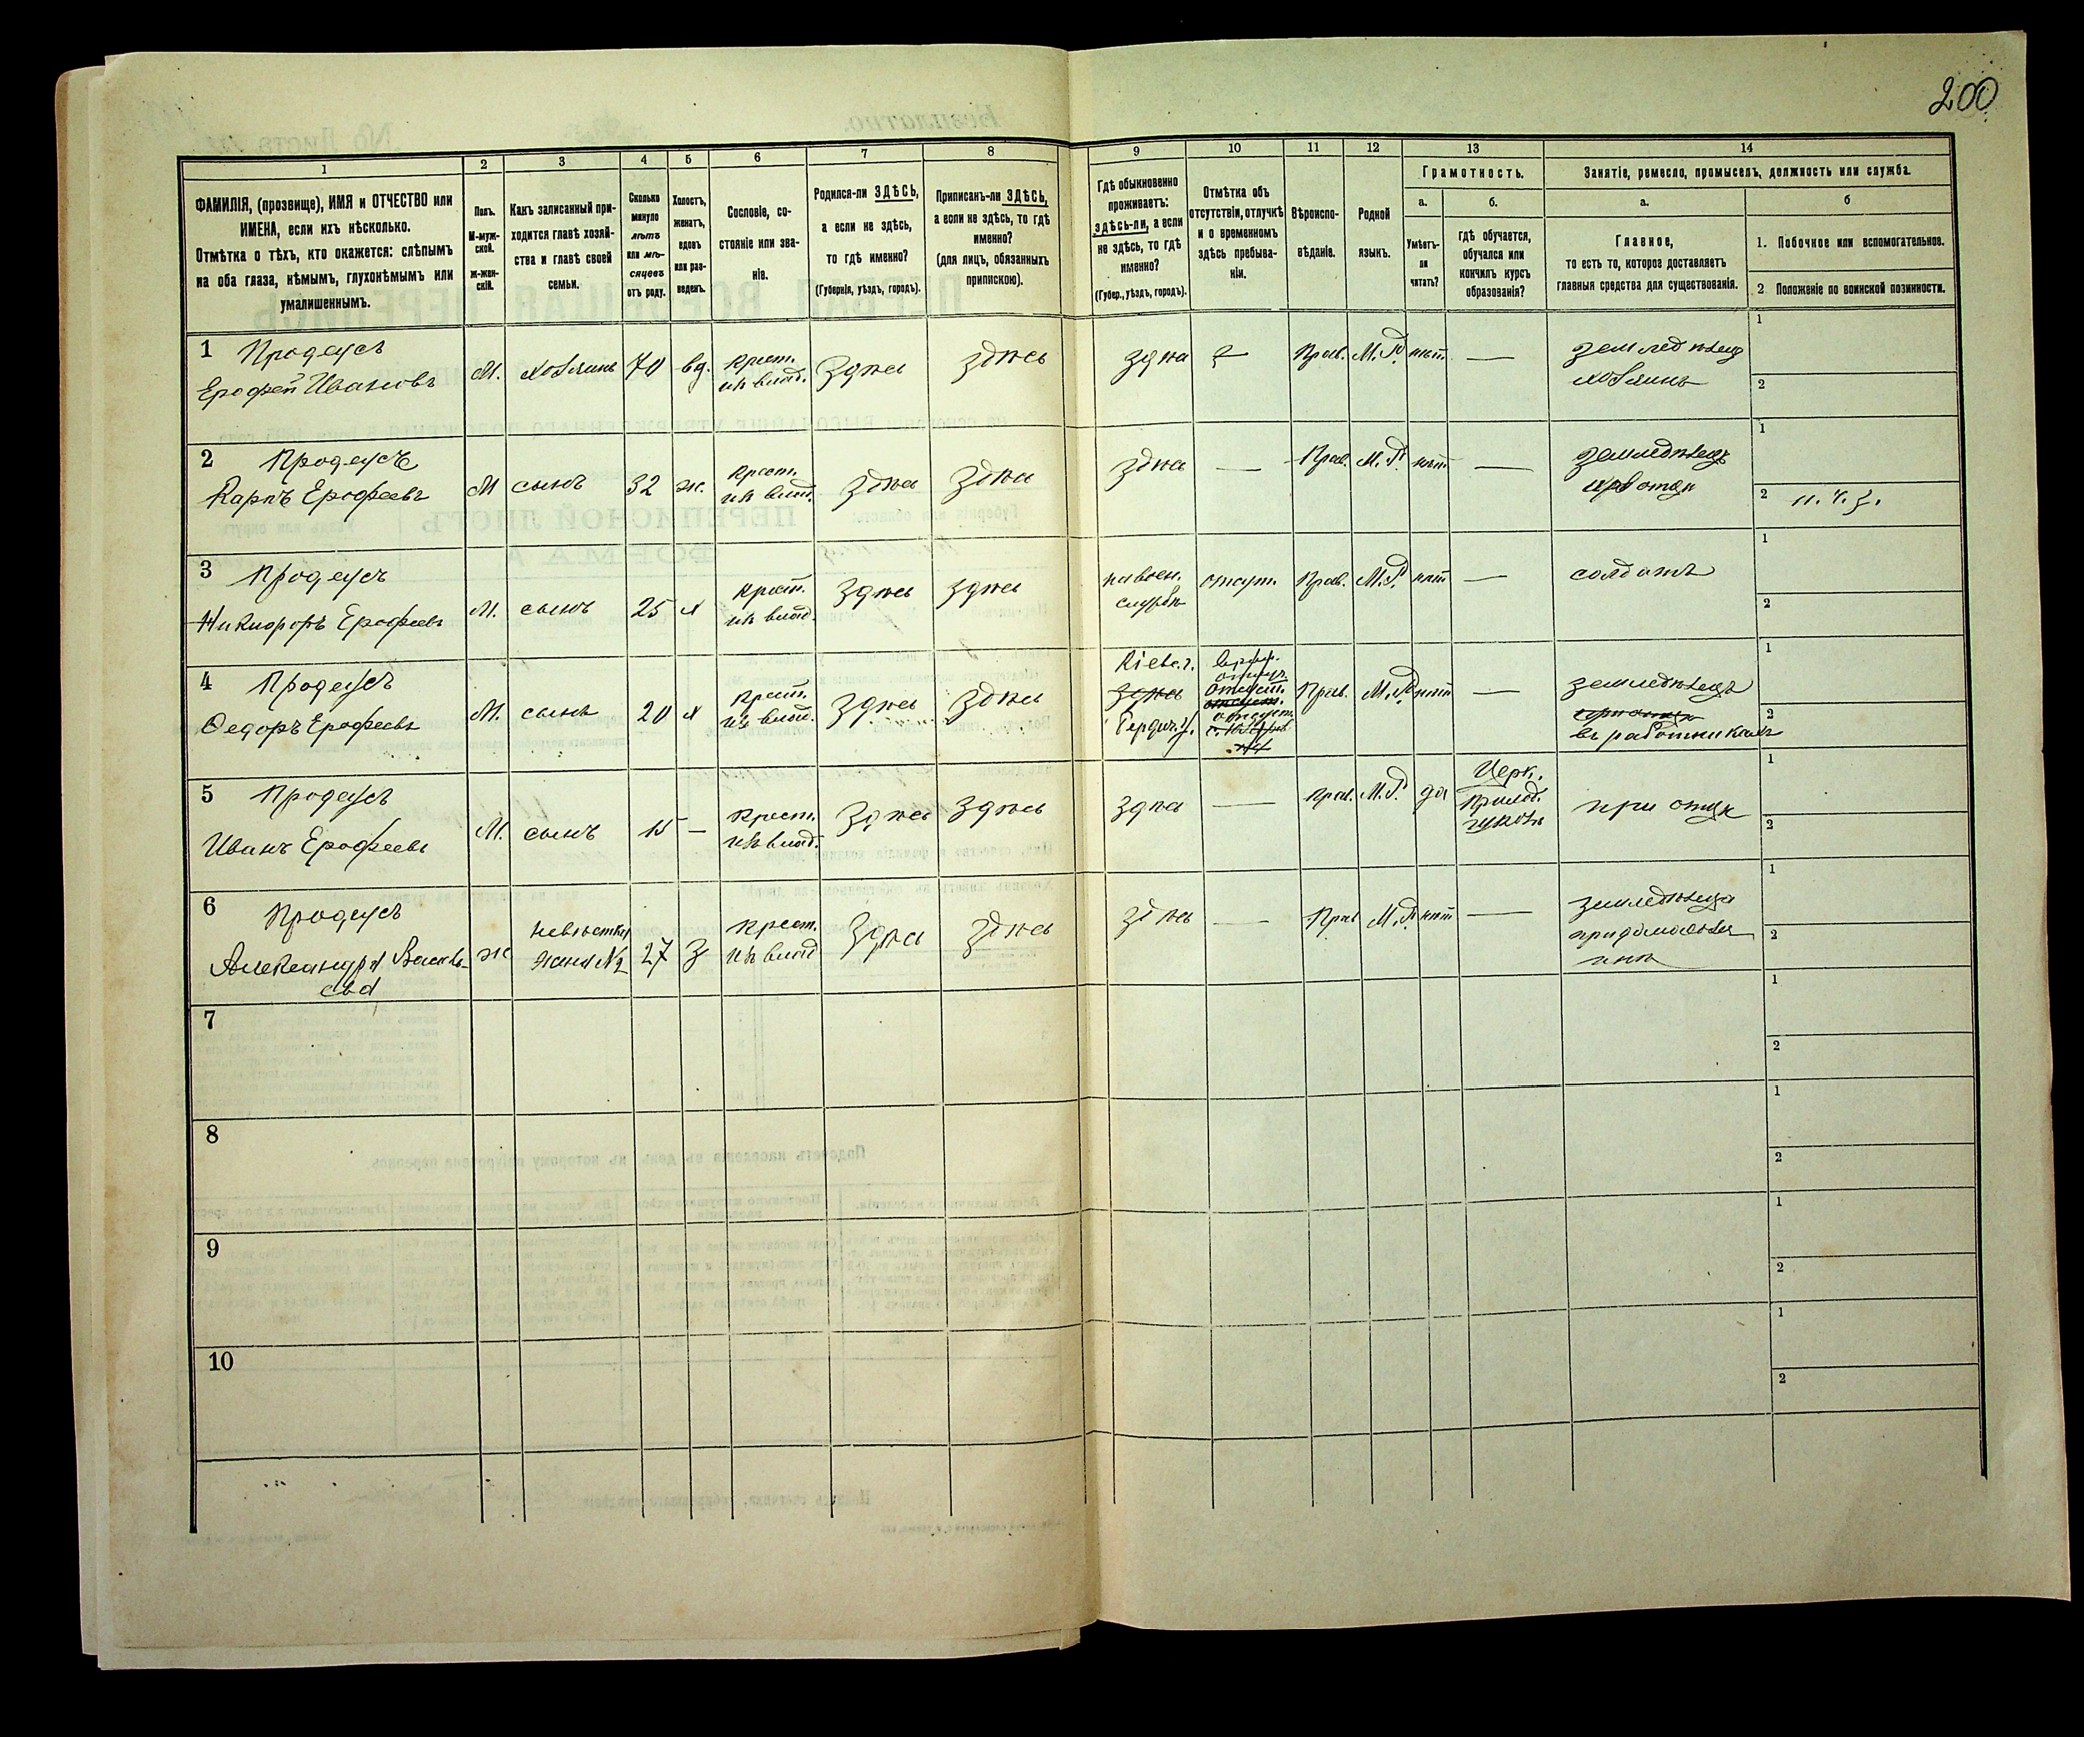 200
1
2
3
4
5
6
7
8
9
10
11
12
13
14
ФАМИЛІЯ, (прозвище), ИМЯ и ОТЧЕСТВО или
ИМЕНА, если ихъ нѣсколько.
Отмѣтка о тѣхъ, кто окажется: слѣпымъ
на оба глаза, нѣмымъ, глухонѣмымъ или
умалишеннымъ.
Полъ.
М-муж-
ской.
Ж-жен-
скій.
Какъ записанный при-
ходится главѣ хозяй-
ства и главѣ своей
семьи.
Сколько
минуло
лѣтъ
или мѣ-
сяцевъ
отъ роду.
Холостъ,
женатъ,
вдовъ
или раз-
веденъ.
Сословіе, со-
стояніе или зва-
ніе.
Родился-ли ЗДѢСЬ,
а если не здѣсь,
то гдѣ именно?
(Губернія, уѣздъ, городъ).
Приписанъ-ли ЗДѢСЬ,
а если не здѣсь, то гдѣ
именно?
(для лицъ, обязанныхъ
припискою).
Гдѣ обыкновенно
проживаетъ:
здѣсь-ли, а если
не здѣсь, то гдѣ
именно?
(Губер., уѣздъ, городъ).
Отмѣтка объ
отсутствіи, отлучкѣ
и о временномъ
здѣсь пребыва-
ніи.
Вѣроиспо-
вѣданіе.
Родной
языкъ.
Грамотность.
а.
Умѣетъ-
ли
читать?
б.
гдѣ обучается,
обучался или
кончилъ курсъ
образованія?
Занятіе, ремесло, промыселъ, должность или служба.
а.
Главное,
то есть то, которое доставляетъ
главныя средства для существованія.
б
1. Побочное или вспомогательное.
2 Положеніе по воинской повинности.
1 Продеусъ
Ерофей Ивановъ
М.
хозяинъ
70
вд.
Крест.
из влад.
Здѣсь
здѣсь
здѣсь
Прав.
М.Р.
нѣт
—
земледѣлец
хозяинъ
1
2
2 Продеусъ
Карпъ Ерофеевъ
М
сынъ
32
ж.
Крест.
из влад.
здѣсь
здѣсь
здѣсь
—
Прав.
М.Р.
нѣт
—
земледѣлецъ
1
2 н. ч. з.
3 Продеусъ
Никифоръ Ерофеевъ
М.
сынъ
25
х
Крест.
из влад.
Здѣсь
здѣсь
на воен.
службѣ
отсут.
Прав.
М.Р.
нѣт
—
солдатъ
1
2
4 Продеусъ
Федоръ Ерофеевъ
М.
сынъ
20
х
Крест.
из влад.
Здѣсь
здѣсь
Кіевс. г.
здѣсь
Бердич. у.
отсут.
Прав.
М.Р.
нѣт
—
земледѣлецъ
въ работникахъ
1
2
5 Продеусъ
Иванъ Ерофеевъ
М.
сынъ
15
—
Крест.
из влад.
Здѣсь
Здѣсь
здѣсь
—
Прав.
М.Р.
да
Церк.
приход.
при отцѣ
1
2
6 Продеусъ
Александра Василь-
ева
ж
невѣстка
жена №2
27
З
Крест.
из влад
Здѣсь
здѣсь
здѣсь
—
Прав
М.Р.
нѣт
—
земледѣлица
1
2
7
1
2
8
1
2
9
1
2
10
1
2